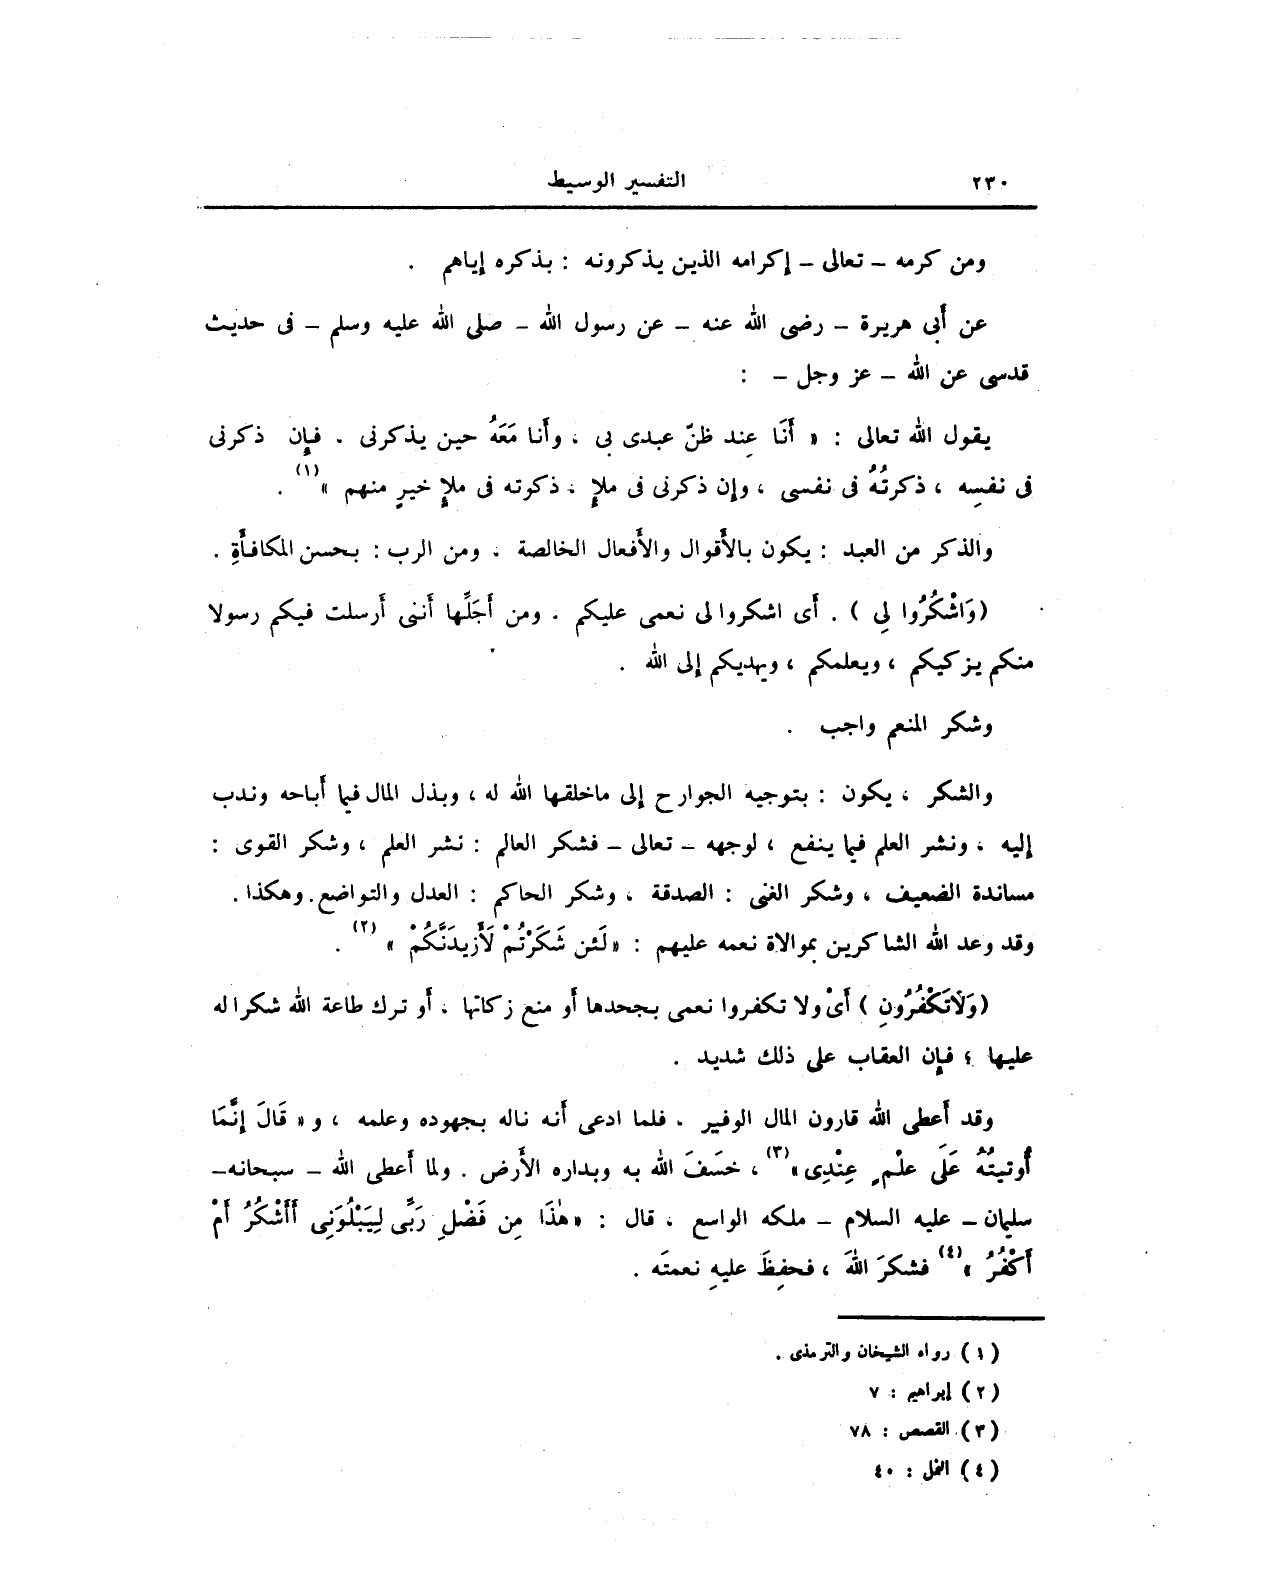 ٢٣٠ التفسير الوسيط
ومن كرمه – تعالى – إكرامه الذين يذكرونه : بذكره إياهم .
عن أَبى هريرة – رضى الله عنه – عن رسول الله – صلى الله عليه وسلم – فى حديث
قدسى عن الله – عز وجل – :
يقول الله تعالى : « أَنَا عِند ظنّ عبدى بى ، وأَنا مَعَهُ حين يذكرنى . فإِن ذكرنى
فى نفسِه ، ذكرتُهُ فى نفسى ، وإن ذكرنى فى ملإٍ ، ذكرته فى ملإٍ خيرٍ منهم »(١) .
والذكر من العبد : يكون بالأَقوال والأَفعال الخالصة ، ومن الرب : بحسن المكافأَةِ .
(وَاشْكُرُوا لِى ) . أَى اشكروا لى نعمى عليكم . ومن أَجَلِّها أَننى أَرسلت فيكم رسولا
منكم يزكيكم ، ويعلمكم ، ويهديكم إلى الله .
وشكر المنعم واجب .
والشكر ، يكون : بتوجيه الجوارح إلى ماخلقها الله له ، وبذل المال فيما أَباحه وندب
إليه ، ونشر العلم فيما ينفع ، لوجهه – تعالى – فشكر العالم : نشر العلم ، وشكر القوى :
مساندة الضعيف ، وشكر الغنى : الصدقة ، وشكر الحاكم : العدل والتواضع . وهكذا .
وقد وعد الله الشاكرين بموالاة نعمه عليهم : «لَئن شَكَرْتُمْ لَأَزيدَنَّكُمْ » (٢) .
(وَلَاتَكْفُرُونِ ) أَىْ ولا تكفروا نعمى بجحدها أَو منع زكاتها ، أَو ترك طاعة الله شكرا له
عليها ؛ فإِن العقاب على ذلك شديد .
وقد أَعطى الله قارون المال الوفير . فلما ادعى أَنه ناله بجهوده وعلمه ، و« قَالَ إِنَّمَا
أُوتيتُهُ عَلَى علْمٍ عِنْدِى »(٣) ، خسَفَ الله به وبداره الأَرض . ولما أَعطى الله – سبحانه–
سليمان – عليه السلام – ملكه الواسع ، قال : «هٰذَا مِن فَضْلِ رَبِّى لِيَبْلُوَنِى أَأَشْكُرُ أَمْ
أَكْفُرُ »(٤) فشكرَ اللهَ ، فحفِظَ عليهِ نعمتَه .
(١) رواه الشيخان والترمذى .
(٢) إبراهيم : ٧
(٣) القصص : ٧٨
(٤) النمل : ٤٠